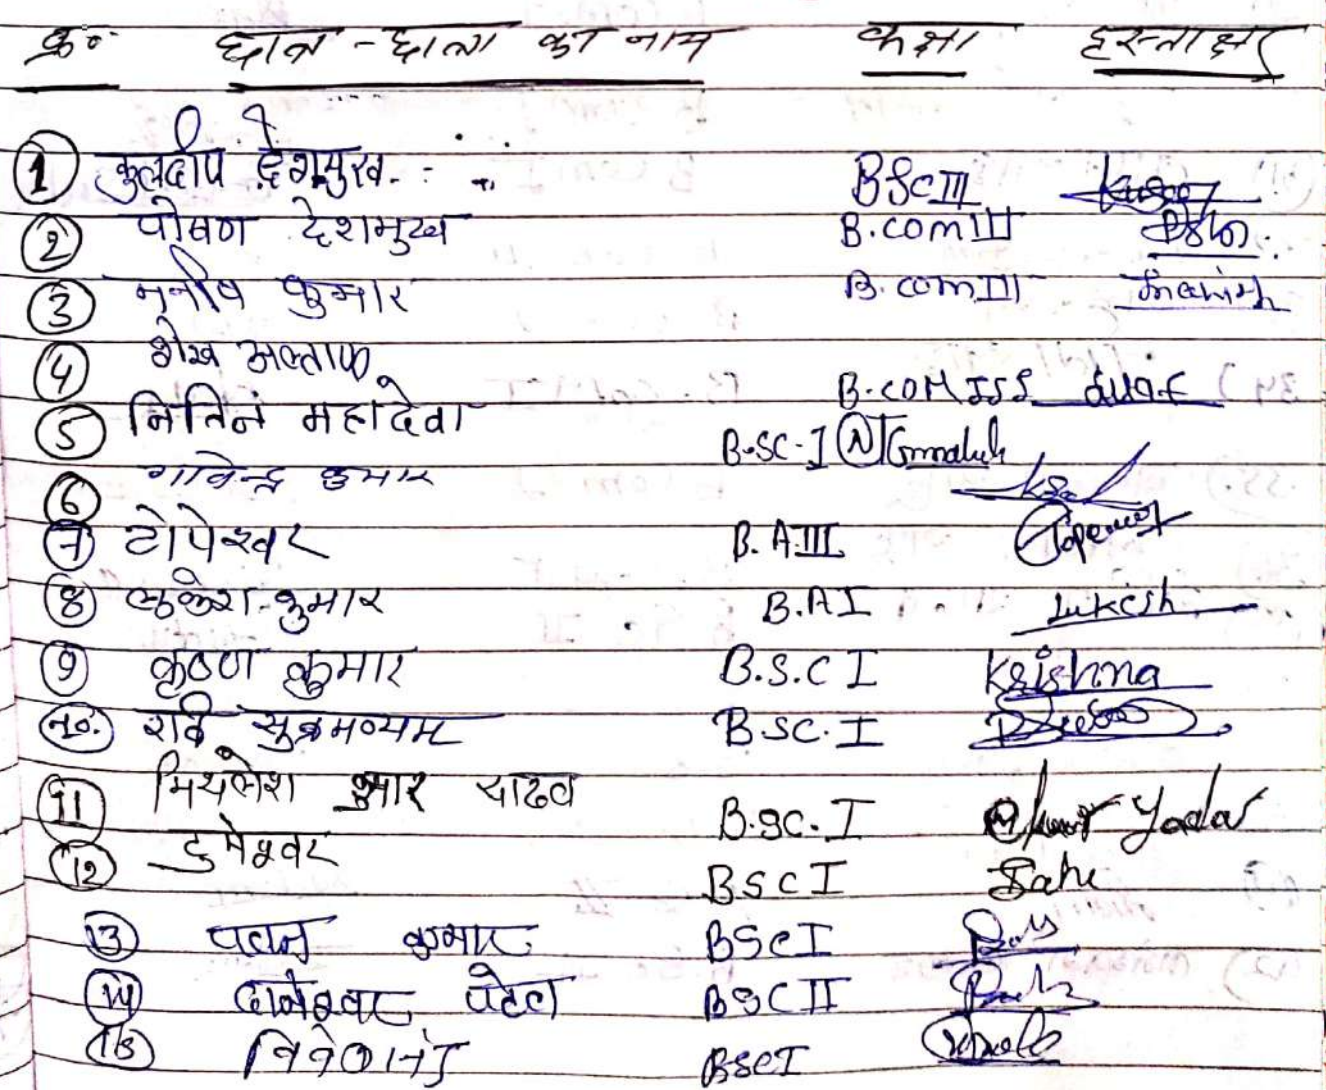 क्र० छात्र-छात्रा का नाम कक्षा हस्ताक्षर
1 कुलदीप देशमुख BSc III
2 पोषण देशमुख B.com III
3 मनीष कुमार B.com III manish
4 शेख अल्ताफ B.COM III
5 नितिन महादेवा B.SC-I
6 गोविन्द्र कुमार
7 टोपेश्वर B.A III Topeswar
8 लुकेश कुमार B.A I Lukesh
9 कृष्ण कुमार B.S.C I Krishna
10. रवि सुब्रमण्यम B.SC. I
11 मिथलेश कुमार यादव B.SC. I Kumar Yadav
12 डुमेश्वर BSC I Sahu
13 पवन कुमार BSC I
14 दानेश्वर पटेल BSC II
15 BSC I